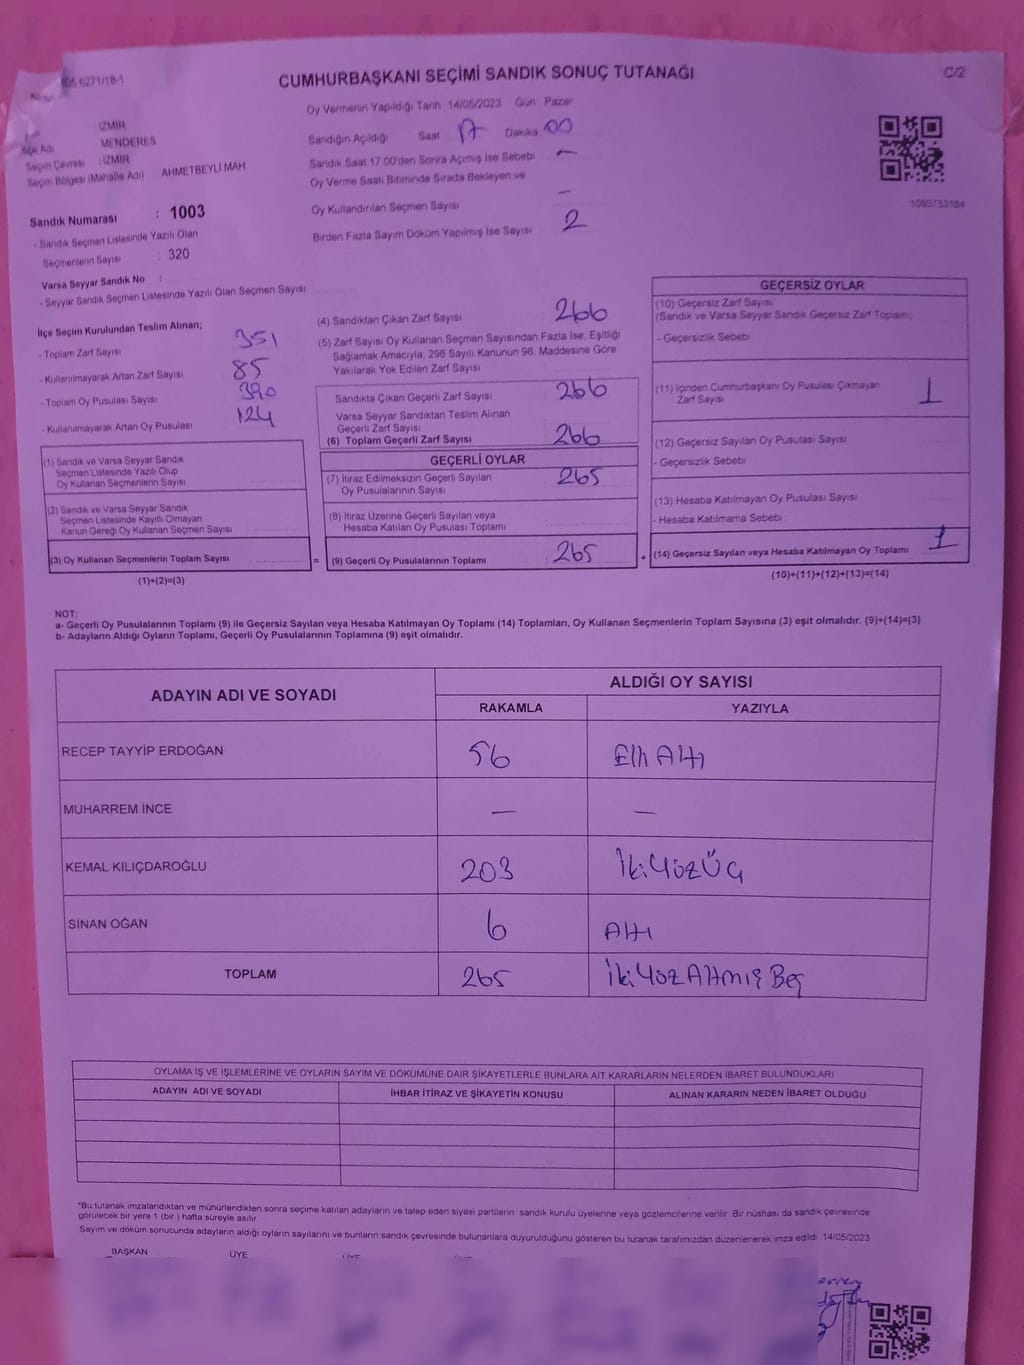 05 6271/18-1
CUMHURBAŞKANI SEÇİMİ SANDIK SONUÇ TUTANAĞI
C/2
Oy Vermenin Yapıldığı Tarih 14/05/2023 Gün Pazar
Sandığın Açıldığı Saat 17 Dakika 00
Sandık Saat 17.00'den Sonra Açılmış İse Sebebi —
Oy Verme Saati Bitiminde Sırada Bekleyen ve
Oy Kullandırılan Seçmen Sayısı —
Birden Fazla Sayım Döküm Yapılmış İse Sayısı 2
İZMİR
İlçe Adı MENDERES
Seçim Çevresi : İZMİR
Seçim Bölgesi (Mahalle Adı) AHMETBEYLİ MAH
1093753184
Sandık Numarası : 1003
- Sandık Seçmen Listesinde Yazılı Olan
Seçmenlerin Sayısı : 320
Varsa Seyyar Sandık No :
- Seyyar Sandık Seçmen Listesinde Yazılı Olan Seçmen Sayısı
İlçe Seçim Kurulundan Teslim Alınan;
- Toplam Zarf Sayısı 351
- Kullanılmayarak Artan Zarf Sayısı 85
- Toplam Oy Pusulası Sayısı 390
- Kullanılmayarak Artan Oy Pusulası 124
(1) Sandık ve Varsa Seyyar Sandık
Seçmen Listesinde Yazılı Olup
Oy Kullanan Seçmenlerin Sayısı
(2) Sandık ve Varsa Seyyar Sandık
Seçmen Listesinde Kayıtlı Olmayan
Kanun Gereği Oy Kullanan Seçmen Sayısı
(3) Oy Kullanan Seçmenlerin Toplam Sayısı =
(1)+(2)=(3)
(4) Sandıktan Çıkan Zarf Sayısı 266
(5) Zarf Sayısı Oy Kullanan Seçmen Sayısından Fazla İse, Eşitliği
Sağlamak Amacıyla, 298 Sayılı Kanunun 98. Maddesine Göre
Yakılarak Yok Edilen Zarf Sayısı
Sandıkta Çıkan Geçerli Zarf Sayısı 266
Varsa Seyyar Sandıktan Teslim Alınan
Geçerli Zarf Sayısı
(6) Toplam Geçerli Zarf Sayısı 266
GEÇERLİ OYLAR
(7) İtiraz Edilmeksizin Geçerli Sayılan
Oy Pusulalarının Sayısı 265
(8) İtiraz Üzerine Geçerli Sayılan veya
Hesaba Katılan Oy Pusulası Toplamı
(9) Geçerli Oy Pusulalarının Toplamı 265 +
GEÇERSİZ OYLAR
(10) Geçersiz Zarf Sayısı
(Sandık ve Varsa Seyyar Sandık Geçersiz Zarf Toplamı)
- Geçersizlik Sebebi
(11) İçinden Cumhurbaşkanı Oy Pusulası Çıkmayan
Zarf Sayısı 1
(12) Geçersiz Sayılan Oy Pusulası Sayısı
- Geçersizlik Sebebi
(13) Hesaba Katılmayan Oy Pusulası Sayısı
- Hesaba Katılmama Sebebi
(14) Geçersiz Sayılan veya Hesaba Katılmayan Oy Toplamı 1
(10)+(11)+(12)+(13)=(14)
NOT:
a- Geçerli Oy Pusulalarının Toplamı (9) ile Geçersiz Sayılan veya Hesaba Katılmayan Oy Toplamı (14) Toplamları, Oy Kullanan Seçmenlerin Toplam Sayısına (3) eşit olmalıdır. (9)+(14)=(3)
b- Adayların Aldığı Oyların Toplamı, Geçerli Oy Pusulalarının Toplamına (9) eşit olmalıdır.
ADAYIN ADI VE SOYADI
ALDIĞI OY SAYISI
RAKAMLA YAZIYLA
RECEP TAYYİP ERDOĞAN 56 Elli Altı
MUHARREM İNCE — —
KEMAL KILIÇDAROĞLU 203 İki Yüz Üç
SİNAN OĞAN 6 Altı
TOPLAM 265 İki Yüz Altmış Beş
OYLAMA İŞ VE İŞLEMLERİNE VE OYLARIN SAYIM VE DÖKÜMÜNE DAİR ŞİKAYETLERLE BUNLARA AİT KARARLARIN NELERDEN İBARET BULUNDUKLARI
ADAYIN ADI VE SOYADI İHBAR İTİRAZ VE ŞİKAYETİN KONUSU ALINAN KARARIN NEDEN İBARET OLDUĞU
*Bu tutanak imzalandıktan ve mühürlendikten sonra seçime katılan adayların ve talep eden siyasi partilerin sandık kurulu üyelerine veya gözlemcilerine verilir. Bir nüshası da sandık çevresinde
görülecek bir yere 1 (bir) hafta süreyle asılır
Sayım ve döküm sonucunda adayların aldığı oyların sayılarını ve bunların sandık çevresinde bulunanlara duyurulduğunu gösteren bu tutanak tarafımızdan düzenlenerek imza edildi 14/05/2023
BAŞKAN ÜYE ÜYE